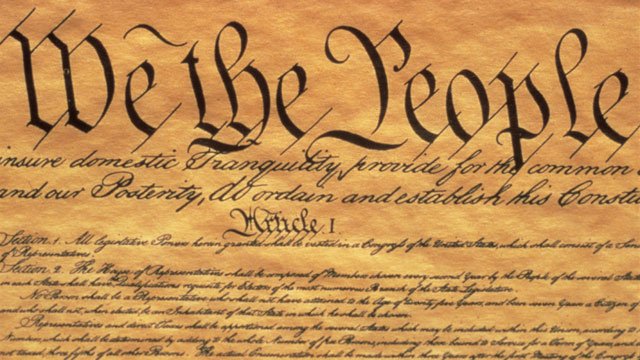 We the People
insure domestic Tranquility, provide for the common
and our Posterity, do ordain and establish this Consti
Article. I.
Section. 1. All legislative Powers herein granted shall be vested in a Congress of the United States, which shall consist of a Sen
of Representatives.
Section. 2. The House of Representatives shall be composed of Members chosen every second Year by the People of the several States
in each State shall have Qualifications requisite for Electors of the most numerous Branch of the State Legislature.
No Person shall be a Representative who shall not have attained to the Age of twenty five Years, and been seven Years a Citizen of
and who shall not, when elected, be an Inhabitant of that State in which he shall be chosen.
Representatives and direct Taxes shall be apportioned among the several States which may be included within this Union, according to
Numbers, which shall be determined by adding to the whole Number of free Persons, including those bound to Service for a Term of Years, and
not taxed, three fifths of all other Persons. The actual Enumeration shall be made within three Years after the first